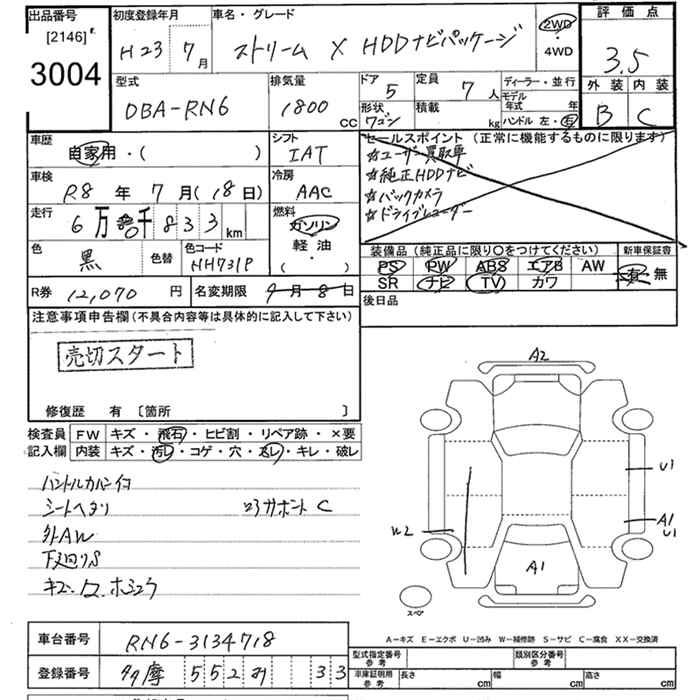 出品番号
[2146]
3004
初度登録年月
H23 7月
車名・グレード
ストリーム X HDDナビパッケージ
2WD
・
4WD
評価点
3.5
外装 内装
B C
型式
DBA-RN6
排気量
1800 CC
ドア
5
形状
ワゴン
定員
7人
積載
kg
ディーラー・並行
モデル
年式 年
ハンドル 左・右
車歴
自家用・( )
シフト
IAT
車検
R8年 7月(18日)
冷房
AAC
走行
6万 0千 833 km
燃料
ガソリン
軽油
・
( )
色
黒
色替
色コード
NH731P
R券 12,070円
名変期限 9月8日
セールスポイント (正常に機能するものに限ります)
☆ユーザー買取車
☆純正HDDナビ
☆バックカメラ
☆ドライブレコーダー
装備品 (純正品に限り○をつけてください)
PS PW ABS エアB AW
SR ナビ TV カワ
新車保証書
有・無
後日品
注意事項申告欄 (不具合内容等は具体的に記入して下さい)
売切スタート
修復歴 有 [箇所 ]
検査員
記入欄
FW キズ・飛石・ヒビ割・リペア跡・×要
内装 キズ・汚レ・コゲ・穴・スレ・キレ・破レ
ハンドルカバー付
シートヘタリ
コアサポート C
外AW
下廻りS
A2
U1
A1
U1
W2
A1
スペア
A-キズ E-エクボ U-凹み W-補修跡 S-サビ C-腐食 XX-交換済
車台番号 RN6-3134718
登録番号 多摩 552 33
型式指定番号
参考
類別区分番号
参考
車庫証明用
参考
長さ cm 幅 cm 高さ cm